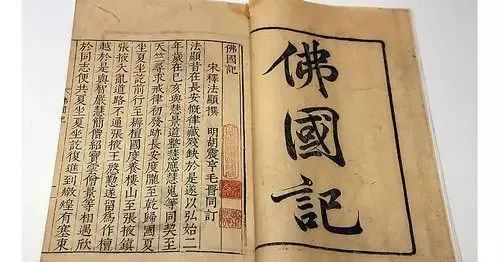 佛國記
佛國記
宋釋法顯撰 明胡震亨毛晉同訂
法顯昔在長安慨律藏殘缺於是遂以弘始二
年歲在己亥與慧景道整慧應慧嵬等同契至
天竺尋求戒律初發跡長安度隴至乾歸國夏
坐夏坐訖前行至褥檀國度養樓山至張掖鎮
張掖大亂道路不通張掖王慇懃遂留為作檀
越於是與智嚴慧簡僧紹寶雲僧景等相遇欣
於同志便共夏坐夏坐訖復進到燉煌有塞東
佛國記